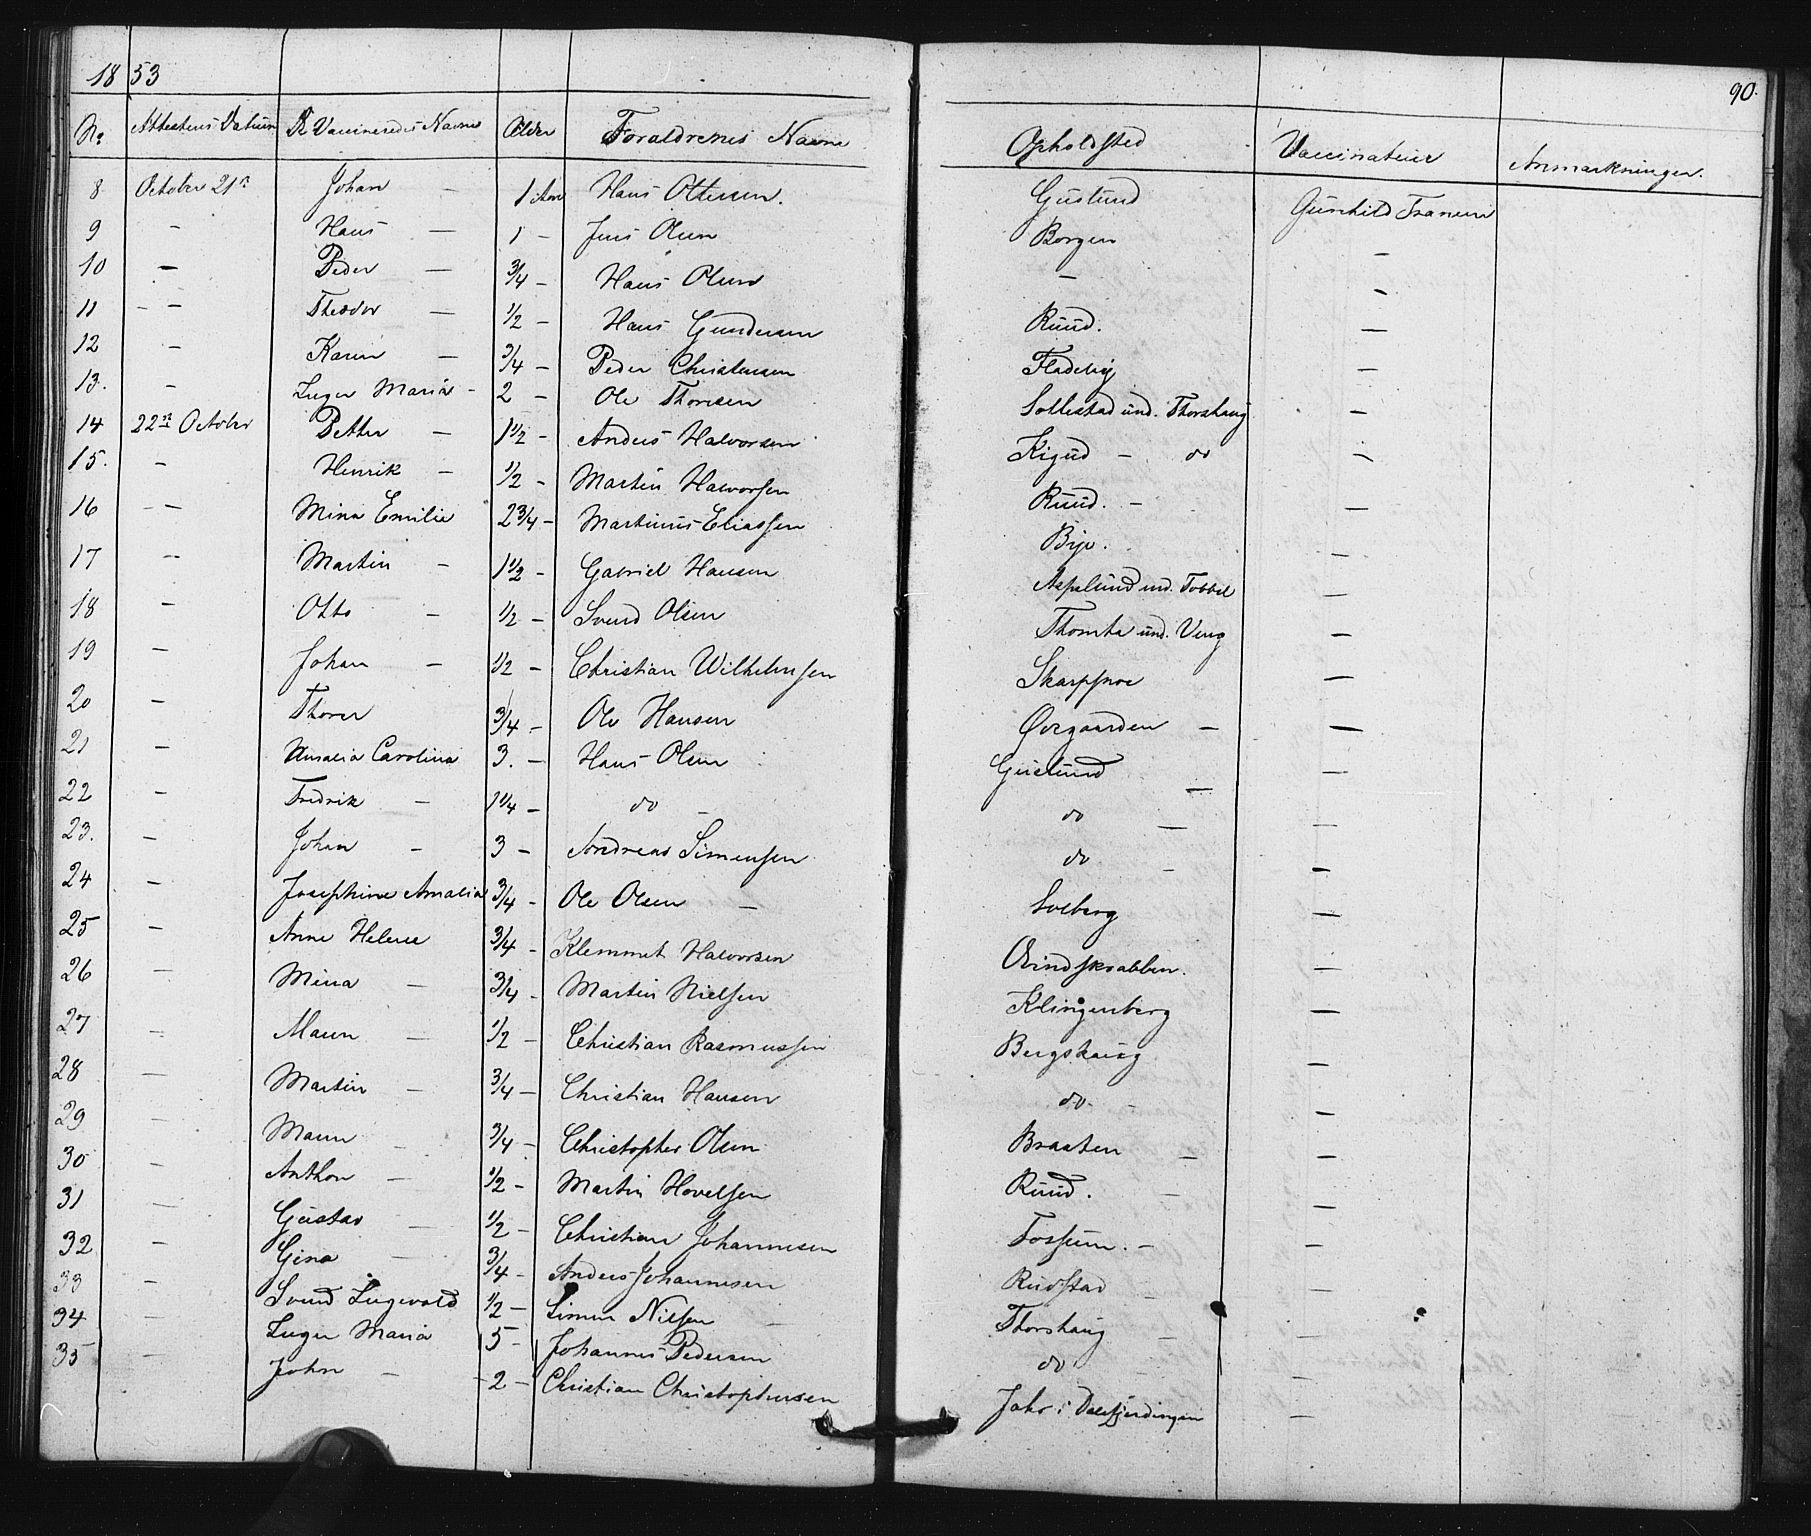 1853
90.
No Attestens Datum De Vaccineredes Navne Alder Foraldrenes Navne Opholdsted Vaccinateur Anmarkninger.
8 October 21n Johan – 1 Aar Hans Ottersen. Guslund Gunhild Tranum
9 – Hans – 1 – Jens Olsen Borgen –
10 – Peder – 3/4 – Hans Olsen – –
11 – – Theodor – 1/2 – Hans Gundersen Ruud. –
12 – Karen – 3/4 – Peder Christensen Fladeby –
13. – Inger Maria – 2 – Ole Thoresen Sollestad und. Thorshaug –
14 22n October Petter – 1 1/2 – Anders Halvorsen Kigud – do –
15. – Henrik – 1/2 – Martin Halvorsen Ruud. – –
16 – – Mina Emilie 2 3/4 – Martinus Eliassen Bye. –
17 – Martin – 1 1/2 – Gabriel Hansen Aspelund und. Tobbel –
18 – Otto – 1/2 – Svend Olsen Thomta und. Veng –
19 – Johan – 1/2 – Christian Wilhelmsen Skarpsnoe –
20 – Thorer 3/4 – Ole Hansen Øvegaarden – –
21 – Amalia Carolina 3. – Hans Olsen Guslund – –
22 – Fredrik – 1 1/4 – do – do – –
23. – Johan – 3 – Andreas Simensen do – –
24 – Josephine Amalia 3/4 – Ole Olsen – Solberg –
25 – Anne Helene 3/4 – Klemmet Halvorsen Qvindskrabben. –
26 – Mina – 3/4 – Martin Nielsen Klingenberg –
27 – Maren – 1/2 – Christian Rasmussen Bergskaug –
28 – Martin – 3/4 – Christian Hansen do – –
29 – Maren – 3/4 – Christopher Olsen Braaten – –
30 – Anthon – 1/2 – Martin Hovelsen Ruud. – –
31 – Gustav – 1/2 – Christian Johannesen Fossum. – –
32 – Gina – 3/4 – Anders Johannesen Rudstad –
33 – Svend Ingevald 1/2 – Simen Nilsen – Thorshaug – –
34 – Inger Maria 5 – Johannes Pedersen do – –
35 – John – 2 – Christian Christophersen Jahr i Dalefjerdingen –